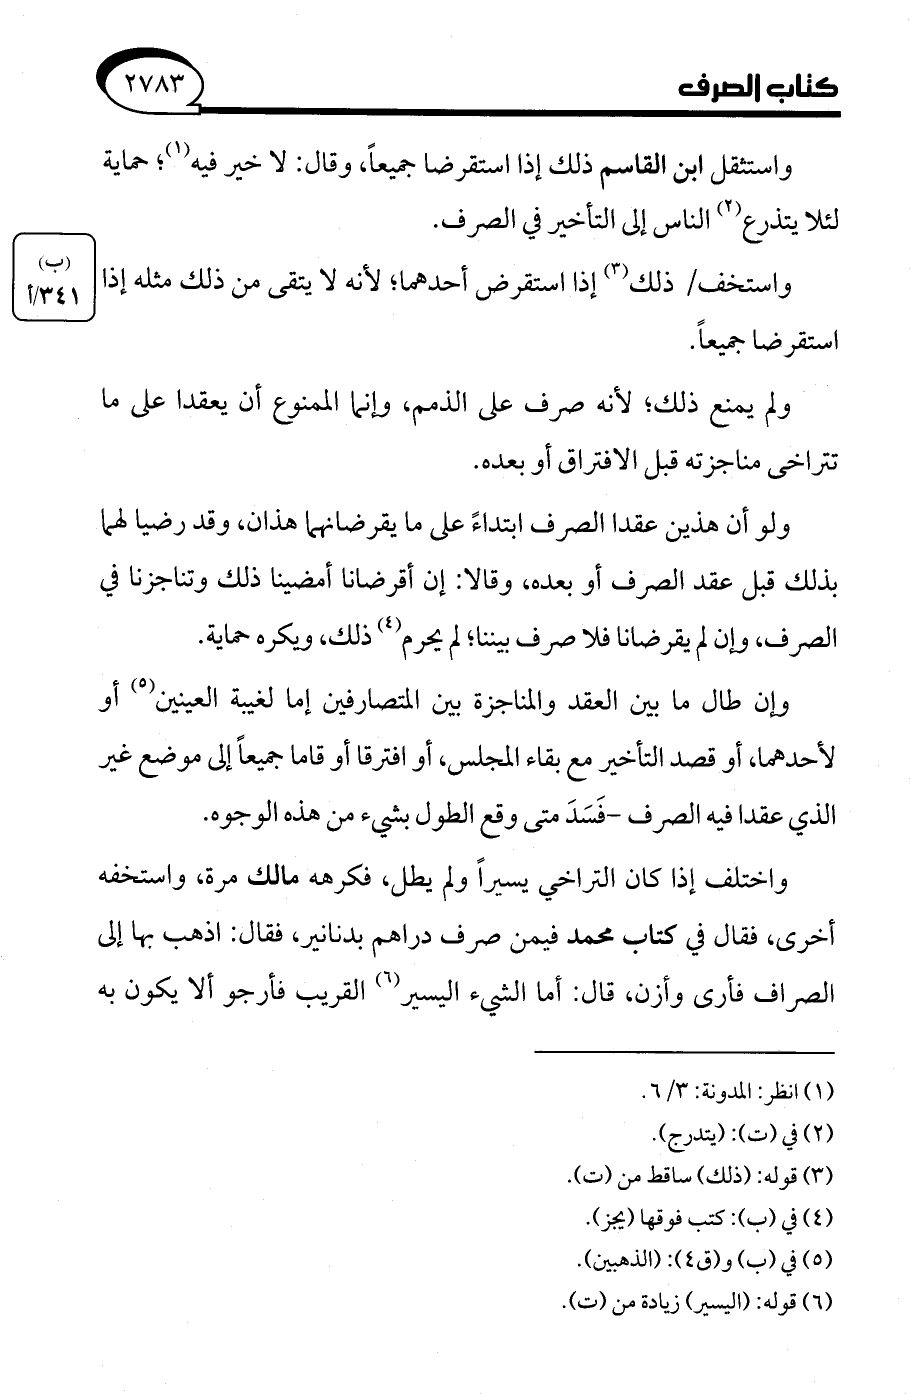 كتاب الصرف
٢٧٨٣
واستثقل ابن القاسم ذلك إذا استقرضا جميعاً، وقال: لا خير فيه(١)؛ حماية
لئلا يتذرع(٢) الناس إلى التأخير في الصرف.
واستخف/ ذلك(٣) إذا استقرض أحدهما؛ لأنه لا يتقى من ذلك مثله إذا
(ب)
٣٤١/أ
استقرضا جميعاً.
ولم يمنع ذلك؛ لأنه صرف على الذمم، وإنما الممنوع أن يعقدا على ما
تتراخى مناجزته قبل الافتراق أو بعده.
ولو أن هذين عقدا الصرف ابتداءً على ما يقرضانهما هذان، وقد رضيا لهما
بذلك قبل عقد الصرف أو بعده، وقالا: إن أقرضانا أمضينا ذلك وتناجزنا في
الصرف، وإن لم يقرضانا فلا صرف بيننا؛ لم يحرم(٤) ذلك، ويكره حماية.
وإن طال ما بين العقد والمناجزة بين المتصارفين إما لغيبة العينين(٥) أو
لأحدهما، أو قصد التأخير مع بقاء المجلس، أو افترقا أو قاما جميعاً إلى موضع غير
الذي عقدا فيه الصرف -فَسَدَ متى وقع الطول بشيء من هذه الوجوه.
واختلف إذا كان التراخي يسيراً ولم يطل، فكرهه مالك مرة، واستخفه
أخرى، فقال في كتاب محمد فيمن صرف دراهم بدنانير، فقال: اذهب بها إلى
الصراف فأرى وأزن، قال: أما الشيء اليسير(٦) القريب فأرجو ألا يكون به
(١) انظر: المدونة: ٣/ ٦.
(٢) في (ت): (يتدرج).
(٣) قوله: (ذلك) ساقط من (ت).
(٤) في (ب): كتب فوقها (يجز).
(٥) في (ب) و(ق٤): (الذهبين).
(٦) قوله: (اليسير) زيادة من (ت).